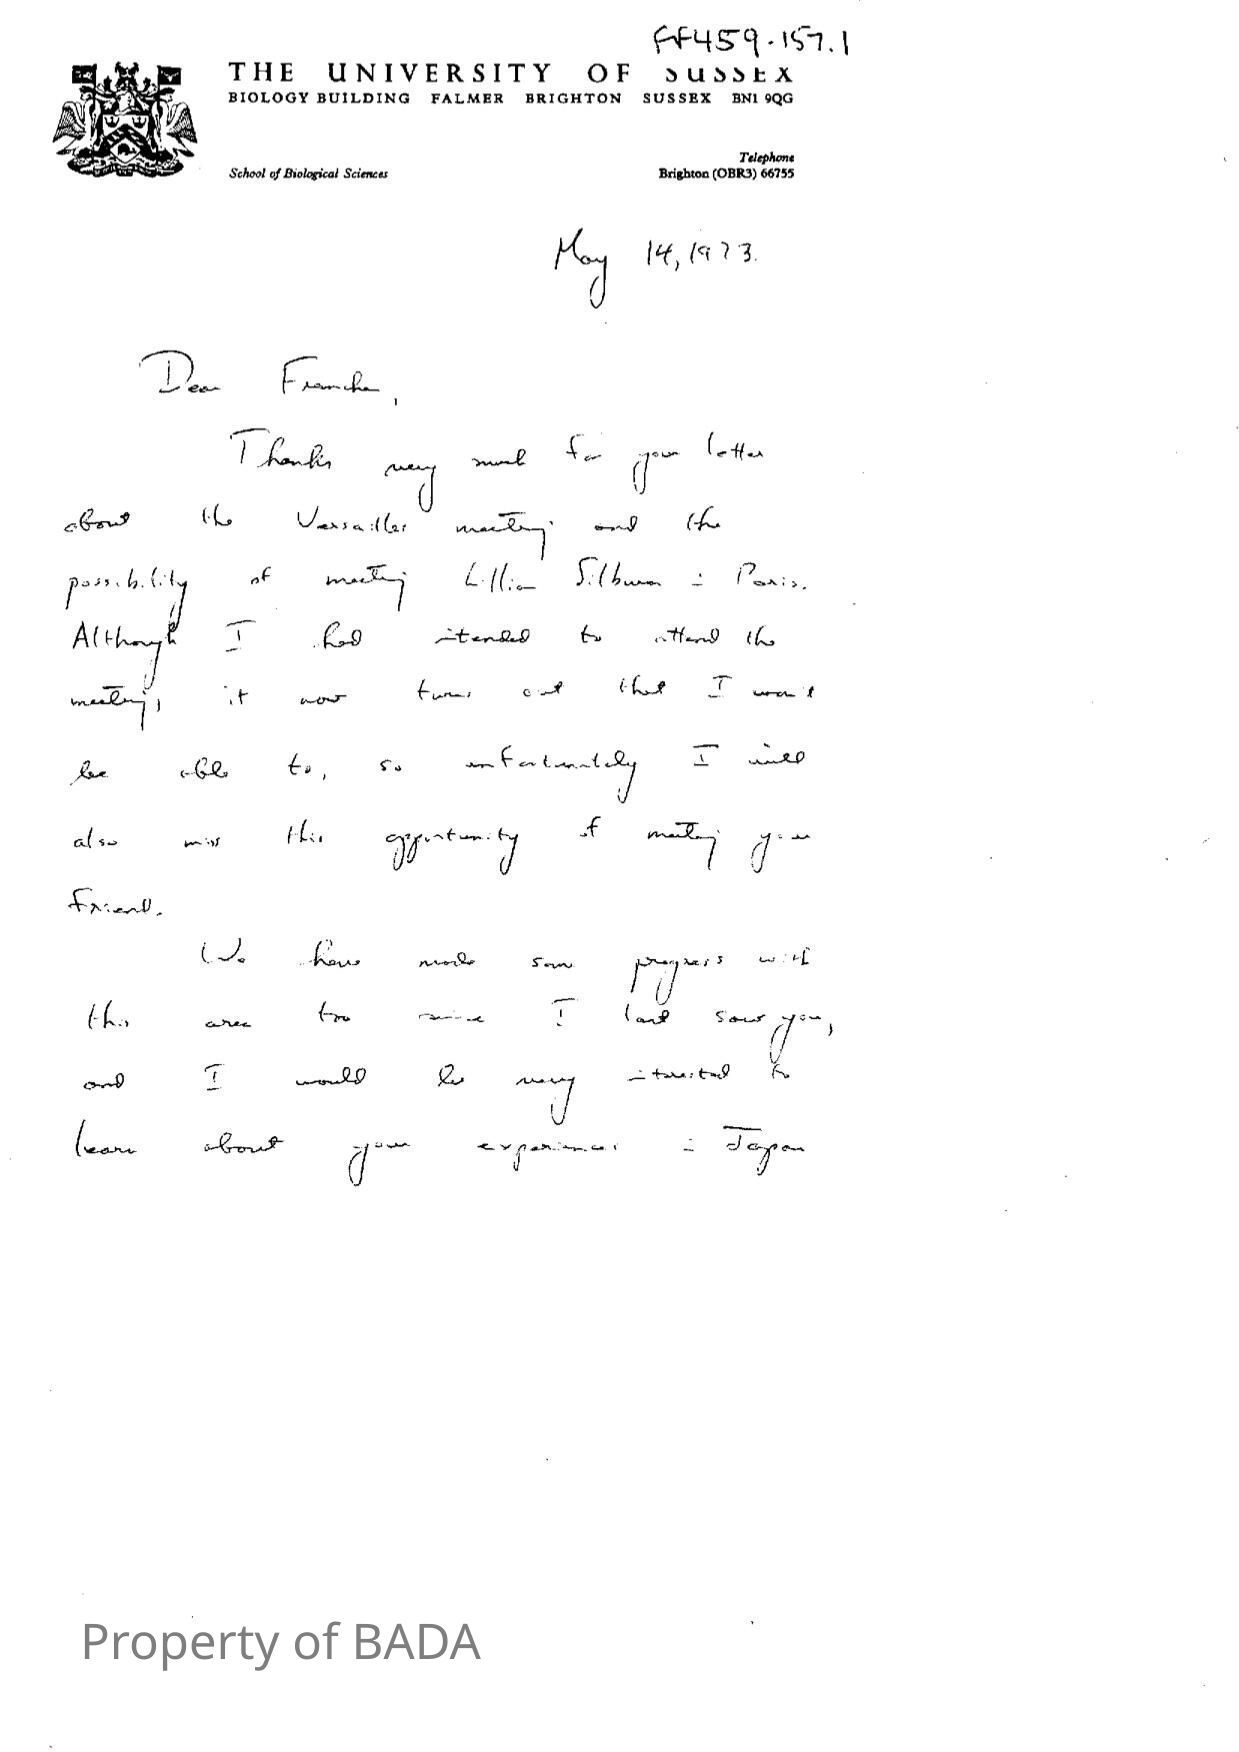 FF459.157.1
THE UNIVERSITY OF SUSSEX
BIOLOGY BUILDING FALMER BRIGHTON SUSSEX BN1 9QG
Telephone
School of Biological Sciences Brighton (OBR3) 66755
May 14, 1973.
Dear
Thanks very much for your letter
about the Versailles meeting and the
possibility of meeting Lillian Silburn in Paris.
Although I had intended to attend the
meeting, it now turns out that I won't
be able to, so unfortunately I will
also miss this opportunity of meeting your
friend.
We have made some progress with
this area too since I last saw you,
and I would be very interested to
learn about your experiences in Japan
Property of BADA